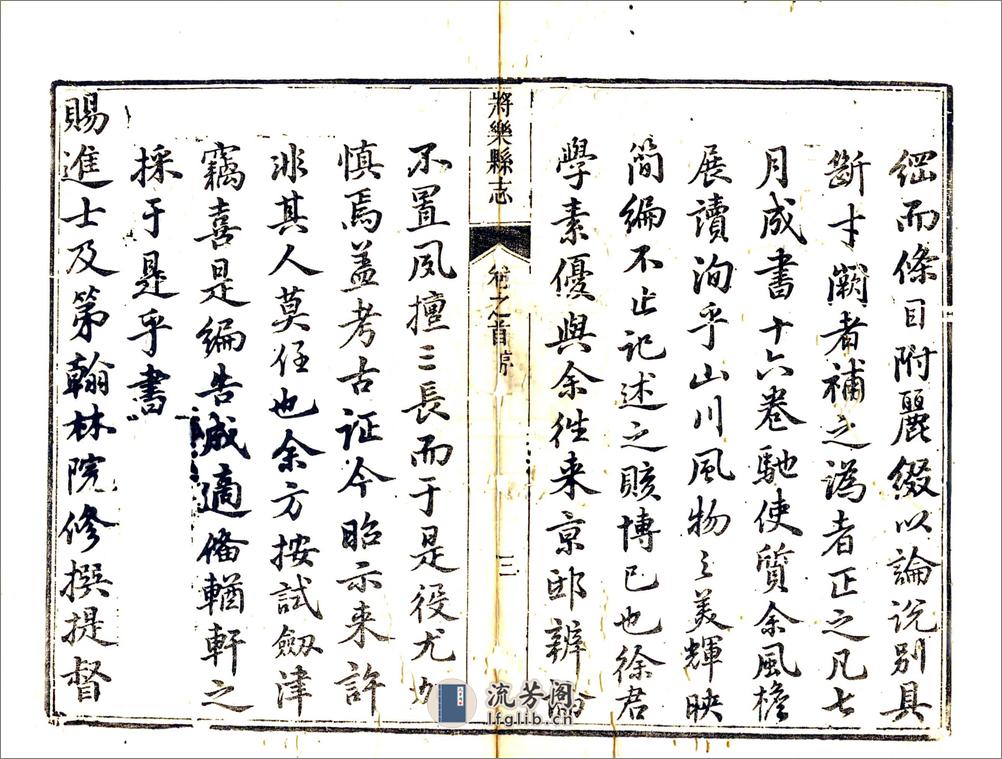 綱而條目附麗綴以論說別具
斷才闕者補之譌者正之凡七
月成書十六卷馳使質余風檐
展讀洵乎山川風物之美輝映
簡編不止記述之賅博已也徐君
學素優與余徃来京邸辨論
將樂縣志
卷之首序
三
不置夙擅三長而于是役尤加
慎焉盖考古证今昭示来許
非其人莫任也余方按試劔津
竊喜是編告成適俻輶軒之
採于是乎書
賜進士及第翰林院修撰提督
流芳阁
lfglib.cn